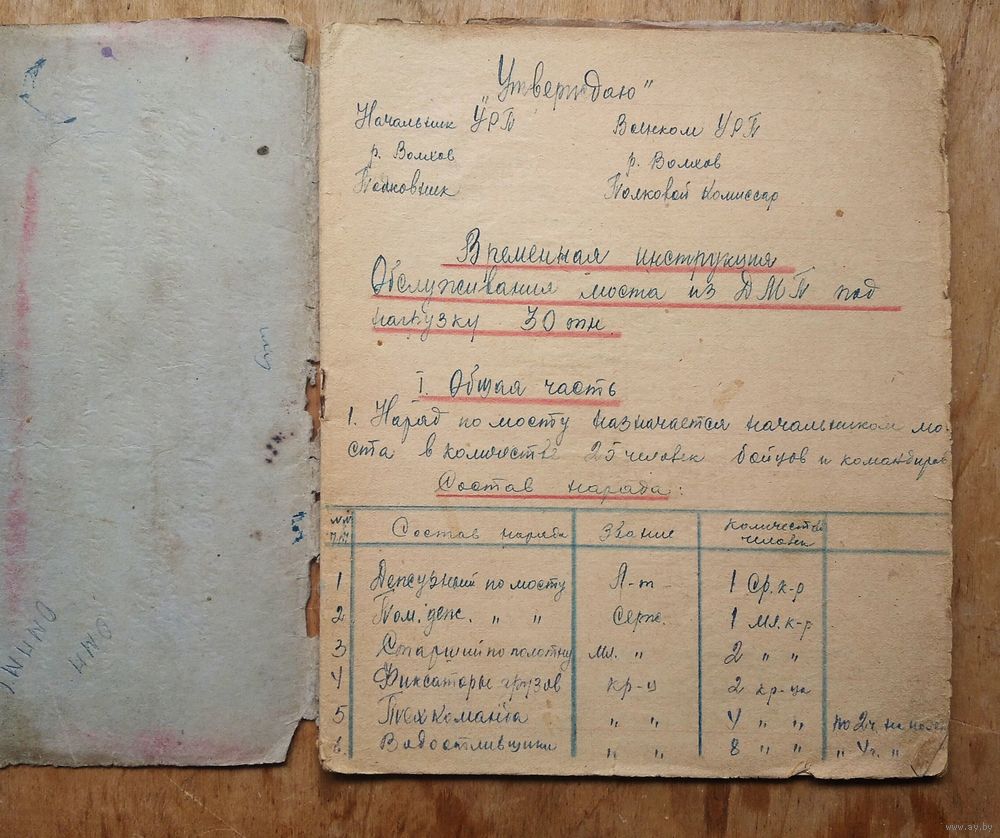 "Утверждаю"
Начальник УРП Военком УРП
р. Волхов р. Волхов
Полковник Полковой Комиссар
Временная инструкция
Обслуживания моста из ДМП под
нагрузку 30 тн.
I. Общая часть
1. Наряд по мосту назначается начальником мо-
ста в количестве 25 человек бойцов и командиров
Состав наряда:
№№ п.п. Состав наряда Звание Количество человек
1 Дежурный по мосту Л-т 1 Ср. к-р
2 Пом. деж. " " Серж. 1 мл. к-р
3 Старший по полотну мл. " 2 " "
4 Фиксаторы грузов кр-ц 2 кр-ца
5 Тех команда " " 4 " " по 2 ч. на
6 Водоотливщики " " 8 " " " 4 ч. "
www.ay.by